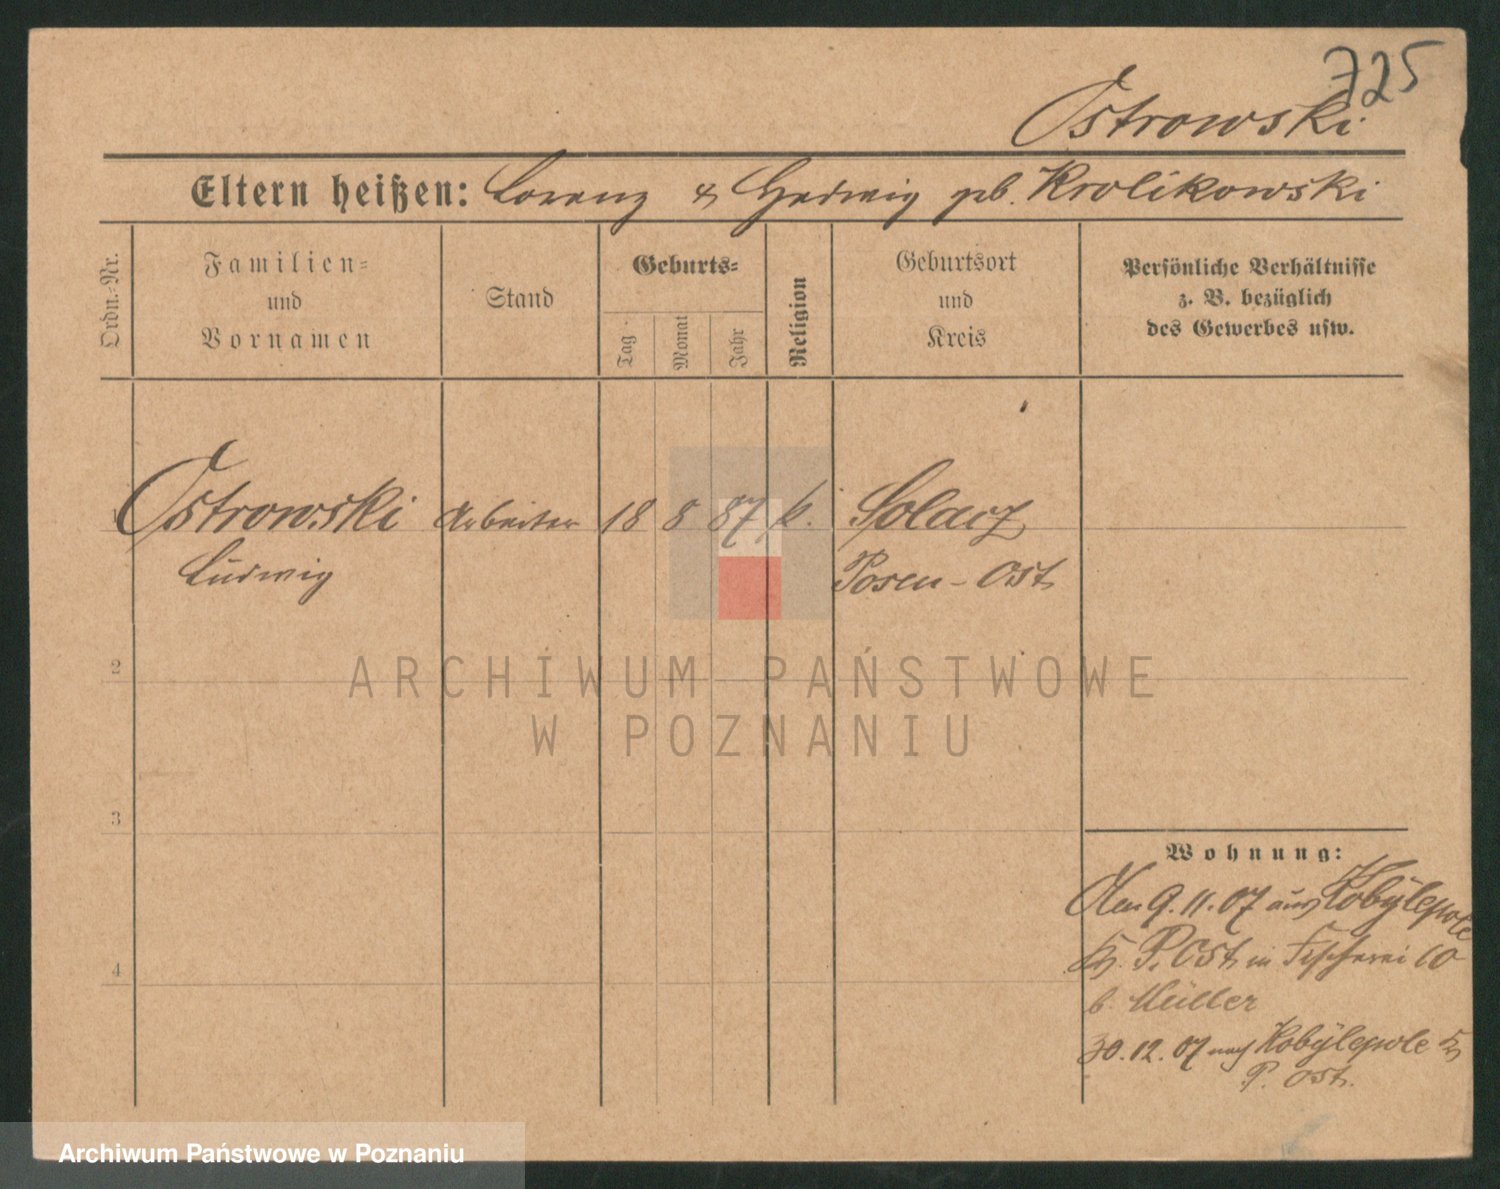 725
Ostrowski
Eltern heißen: Lorenz & Hedwig geb. Krolikowski
Ordn.-Nr.
Familien-
und
Vornamen
Stand
Geburts-
Tag
Monat
Jahr
Religion
Geburtsort
und
Kreis
Persönliche Verhältnisse
z. B. bezüglich
des Gewerbes usw.
1 Ostrowski Arbeiter 18 8 87 k. Solacz
Ludwig Posen-Ost
2
ARCHIWUM PAŃSTWOWE
W POZNANIU
3
Wohnung:
9.11.07 aus Kobylepole
Kr. P. Ost in Fischerei 10
b. Müller
4
30.12.07 nach Kobylepole Kr
P. Ost.
Archiwum Państwowe w Poznaniu